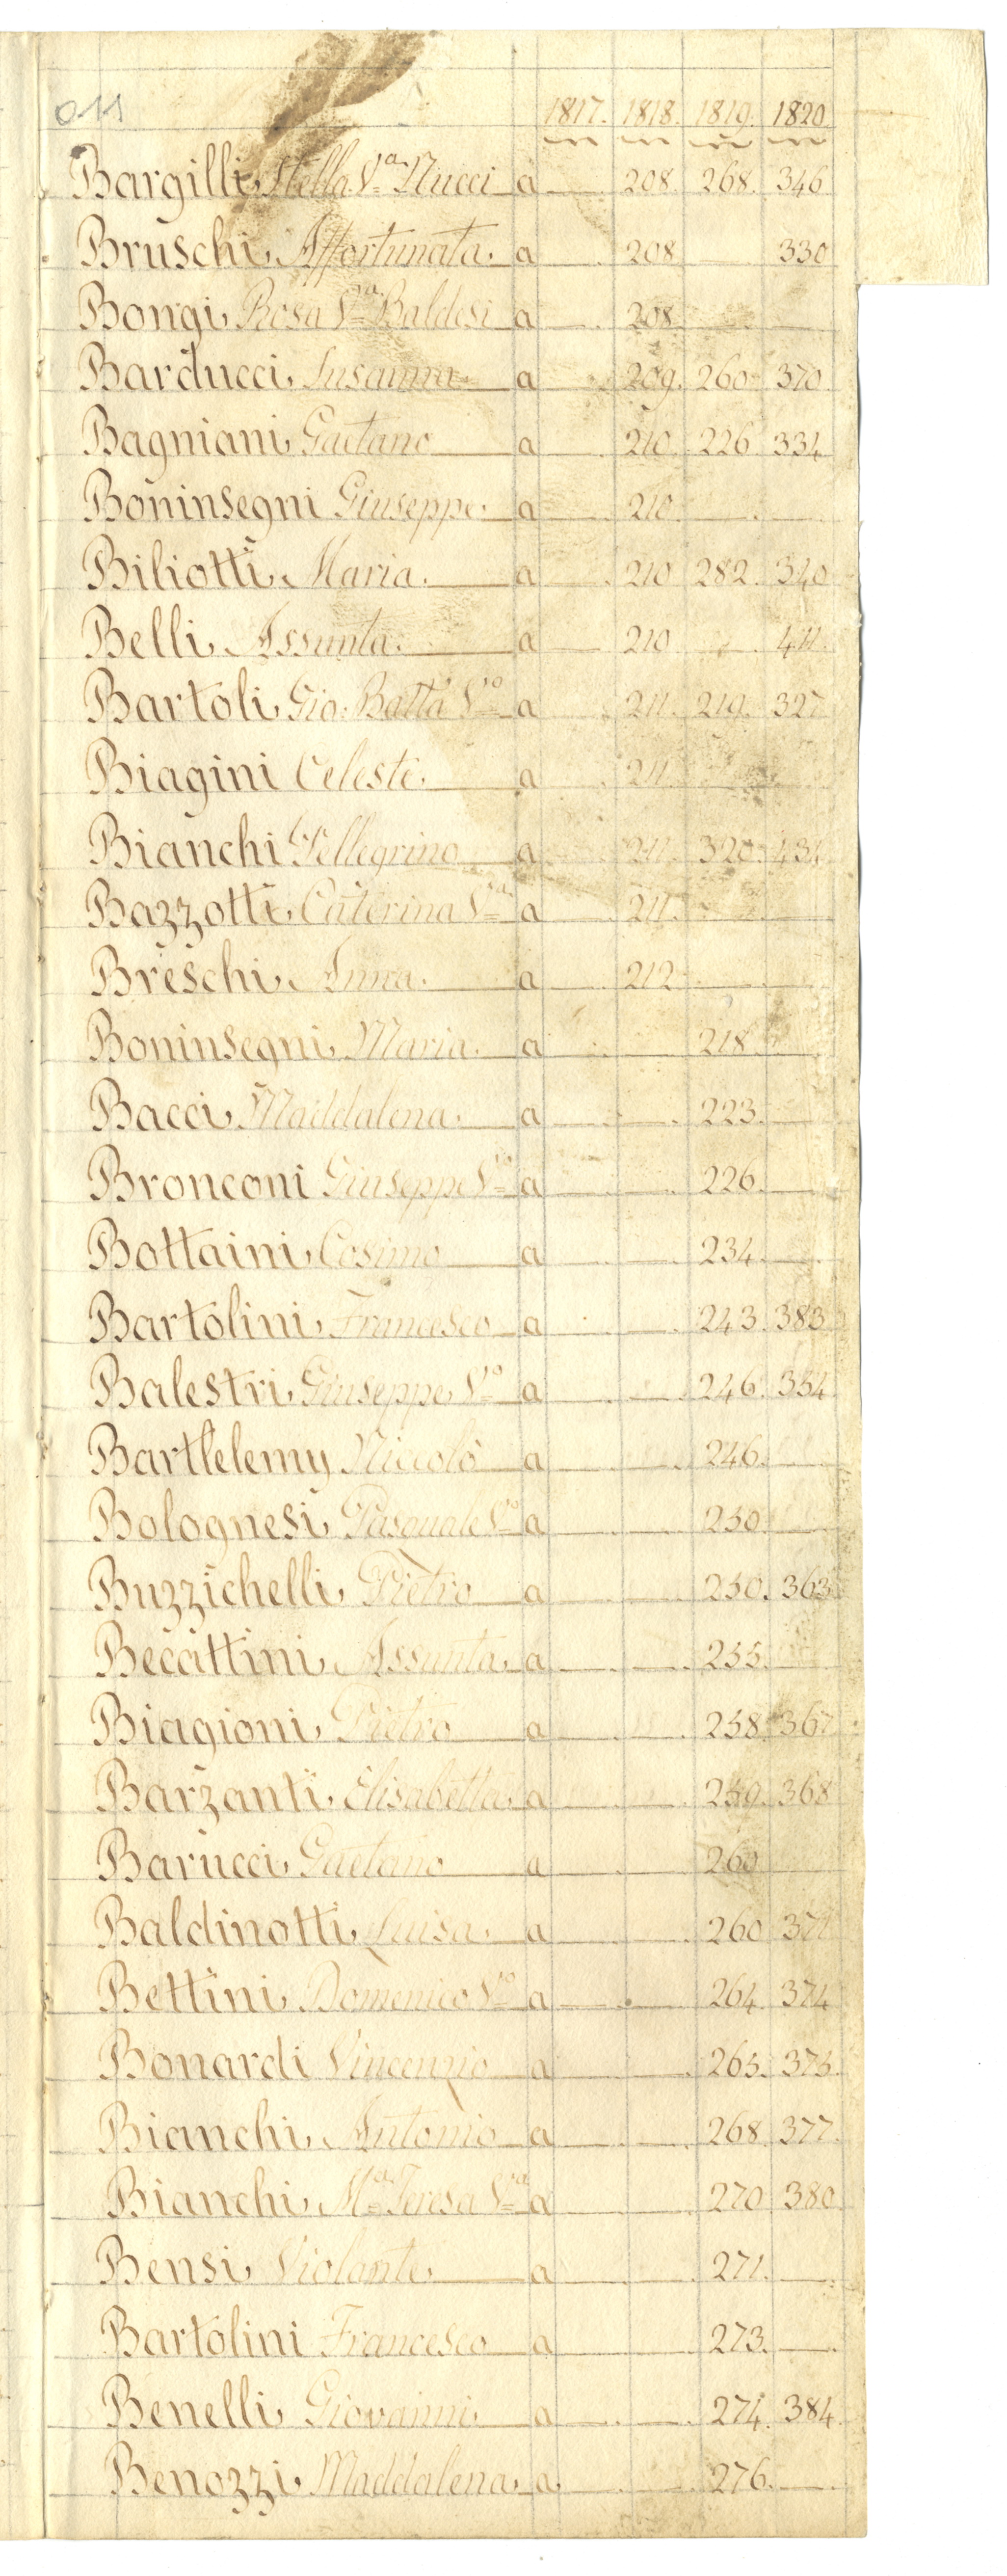 011
1817. 1818. 1819. 1820.
Bargilli, Stella Va Nucci a 208. 268. 346
Bruschi, Affortunata. a 208 330
Bongi, Rosa Va Baldesi a 208
Barducci, Susanna a 209. 260. 370.
Bagniani, Gaetano a 210. 226. 334
Boninsegni Giuseppe. a 210.
Biliotti, Maria. a 210 282. 340
Belli, Assunta. a 210. 411.
Bartoli, Gio: Batta Vo a 211. 219. 327
Biagini Celeste. a 211.
Bianchi Pellegrino a 211. 320. 431
Bazzotti, Caterina Va a 211.
Breschi, Anna. a 212
Boninsegni, Maria. a 218.
Bacci, Maddalena. a 223.
Bronconi Giuseppe Vo a 226.
Bottaini, Cosimo a 234.
Bartolini, Francesco a 243. 383
Balestri, Giuseppe, Vo a 246. 354
Bartlelemy, Niccolò a 246.
Bolognesi, Pasquale Vo a 250
Buzzichelli, Pietro a 250. 363
Becattini, Assunta. a 255.
Biagioni, Pietro a 258. 367
Barzanti, Elisabetta. a 259. 368
Barucci, Gaetano a 260
Baldinotti, Luisa. a 260 371
Bettini, Domenico Vo a 264. 374
Bonardi Vincenzio a 265. 375.
Bianchi, Antonio a 268. 377.
Bianchi, Ma Teresa Va a 270. 380.
Bensi, Violante. a 271.
Bartolini Francesco a 273.
Benelli, Giovanni a 274. 384.
Benozzi, Maddalena. a. 276.